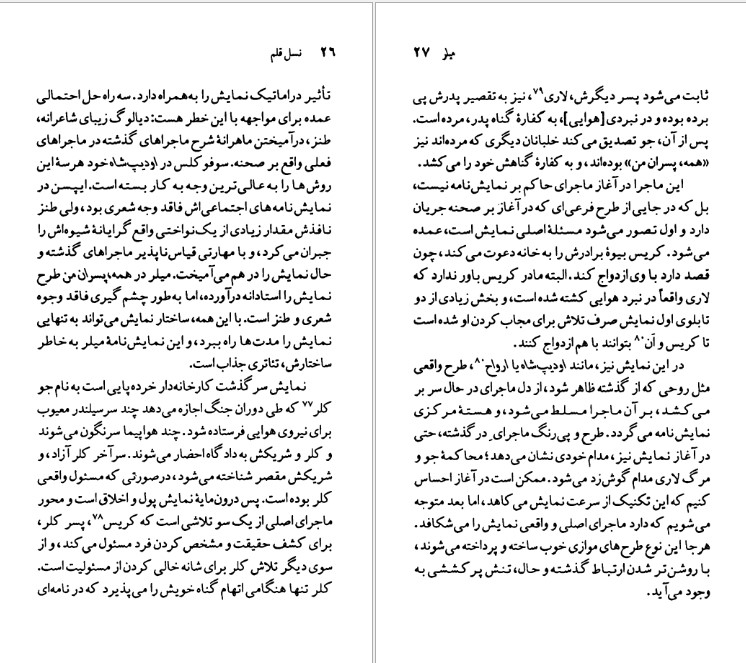 ۲۶ نسل قلم
تأثیر دراماتیک نمایش را به‌همراه دارد. سه راه حل احتمالی
عمده برای مواجهه با این خطر هست: دیالوگ زیبای شاعرانه،
طنز، درآمیختن ماهرانهٔ شرح ماجراهای گذشته در ماجراهای
فعلی واقع بر صحنه. سوفوکلس در اودیپ‌شاه خود هر سهٔ این
روش‌ها را به عالی‌ترین وجه به کار بسته است. ایبسن در
نمایش‌نامه‌های اجتماعی‌اش فاقد وجه شعری بود، ولی طنز
نافذش مقدار زیادی از یک‌نواختی واقع‌گرایانهٔ شیوه‌اش را
جبران می‌کرد، و با مهارتی قیاس‌ناپذیر ماجراهای گذشته و
حال نمایش را در هم می‌آمیخت. میلر در همه‌پسران من طرح
نمایش را استادانه درآورده، اما به‌طور چشم‌گیری فاقد وجوه
شعری و طنز است. با این همه، ساختار نمایش می‌تواند به تنهایی
نمایش را مدت‌ها راه ببرد، و این نمایش‌نامهٔ میلر به خاطر
ساختارش، تئاتری جذاب است.
نمایش سرگذشت کارخانه‌دار خرده‌پایی است به نام جو
کلر۷۷ که طی دوران جنگ اجازه می‌دهد چند سرسیلندر معیوب
برای نیروی هوایی فرستاده شود. چند هواپیما سرنگون می‌شوند
و کلر و شریکش به دادگاه احضار می‌شوند. سرآخر کلر آزاد، و
شریکش مقصر شناخته می‌شود، درصورتی که مسئول واقعی
کلر بوده است. پس درون‌مایهٔ نمایش پول و اخلاق است و محور
ماجرای اصلی از یک سو تلاشی است که کریس۷۸، پسر کلر،
برای کشف حقیقت و مشخص کردن فرد مسئول می‌کند، و از
سوی دیگر تلاش کلر برای شانه خالی کردن از مسئولیت است.
کلر تنها هنگامی اتهام گناه خویش را می‌پذیرد که در نامه‌ای
میلر ۲۷
ثابت می‌شود پسر دیگرش، لاری۷۹، نیز به تقصیر پدرش پی
برده بوده و در نبردی [هوایی]، به کفارهٔ گناه پدر، مرده است.
پس از آن، جو تصدیق می‌کند خلبانان دیگری که مرده‌اند نیز
«همه، پسران من» بوده‌اند، و به کفارهٔ گناهش خود را می‌کشد.
این ماجرا در آغاز ماجرای حاکم بر نمایش‌نامه نیست،
بل که در جایی از طرح فرعی‌ای که در آغاز بر صحنه جریان
دارد و اول تصور می‌شود مسئلهٔ اصلی نمایش است، عمده
می‌شود. کریس بیوهٔ برادرش را به خانه دعوت می‌کند، چون
قصد دارد با وی ازدواج کند. البته مادر کریس باور ندارد که
لاری واقعاً در نبرد هوایی کشته شده است، و بخش زیادی از دو
تابلوی اول نمایش صرف تلاش برای مجاب کردن او شده است
تا کریس و آن۸۰ بتوانند با هم ازدواج کنند.
در این نمایش نیز، مانند اودیپ‌شاه یا ارواح۸۰، طرح واقعی
مثل روحی که از گذشته ظاهر شود، از دل ماجرای در حال سر بر
می‌کشد، بر آن ماجرا مسلط می‌شود، و هستهٔ مرکزی
نمایش‌نامه می‌گردد. طرح و پی‌رنگ ماجرای ِ در گذشته، حتی
در آغاز نمایش نیز، مدام خودی نشان می‌دهد؛ محاکمهٔ جو و
مرگ لاری مدام گوش‌زد می‌شود. ممکن است در آغاز احساس
کنیم که این تکنیک از سرعت نمایش می‌کاهد، اما بعد متوجه
می‌شویم که دارد ماجرای اصلی و واقعی نمایش را می‌شکافد.
هرجا این نوع طرح‌های موازی خوب ساخته و پرداخته می‌شوند،
با روشن‌تر شدن ارتباط گذشته و حال، تنش پرکششی به
وجود می‌آید.